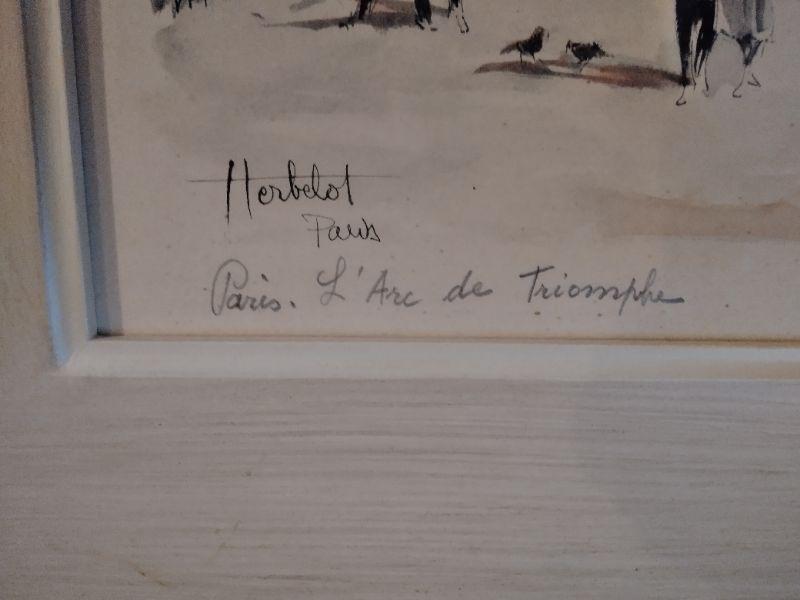 Herbelot
Paris
Paris. L'Arc de Triomphe